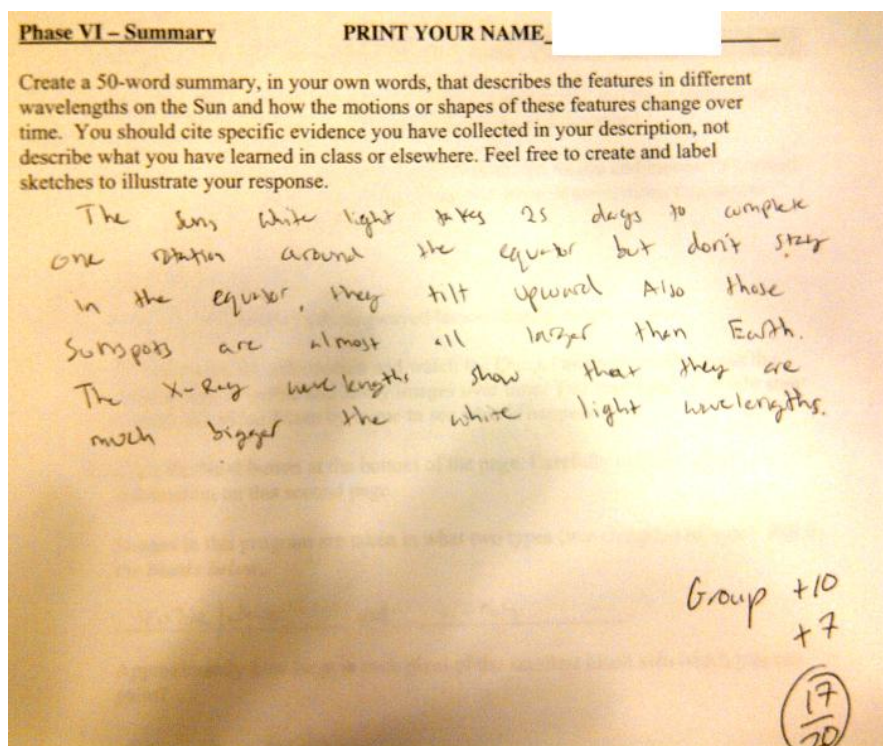 Phase VI – Summary PRINT YOUR NAME
Create a 50-word summary, in your own words, that describes the features in different
wavelengths on the Sun and how the motions or shapes of these features change over
time. You should cite specific evidence you have collected in your description, not
describe what you have learned in class or elsewhere. Feel free to create and label
sketches to illustrate your response.
The Suns white light takes 25 days to complete
one rotation around the equator but don't stay
in the equator, they tilt upward Also those
Sunspots are almost all larger than Earth.
The X-Ray wavelengths show that they are
much bigger the white light wavelengths.
Group +10
+7
17
20